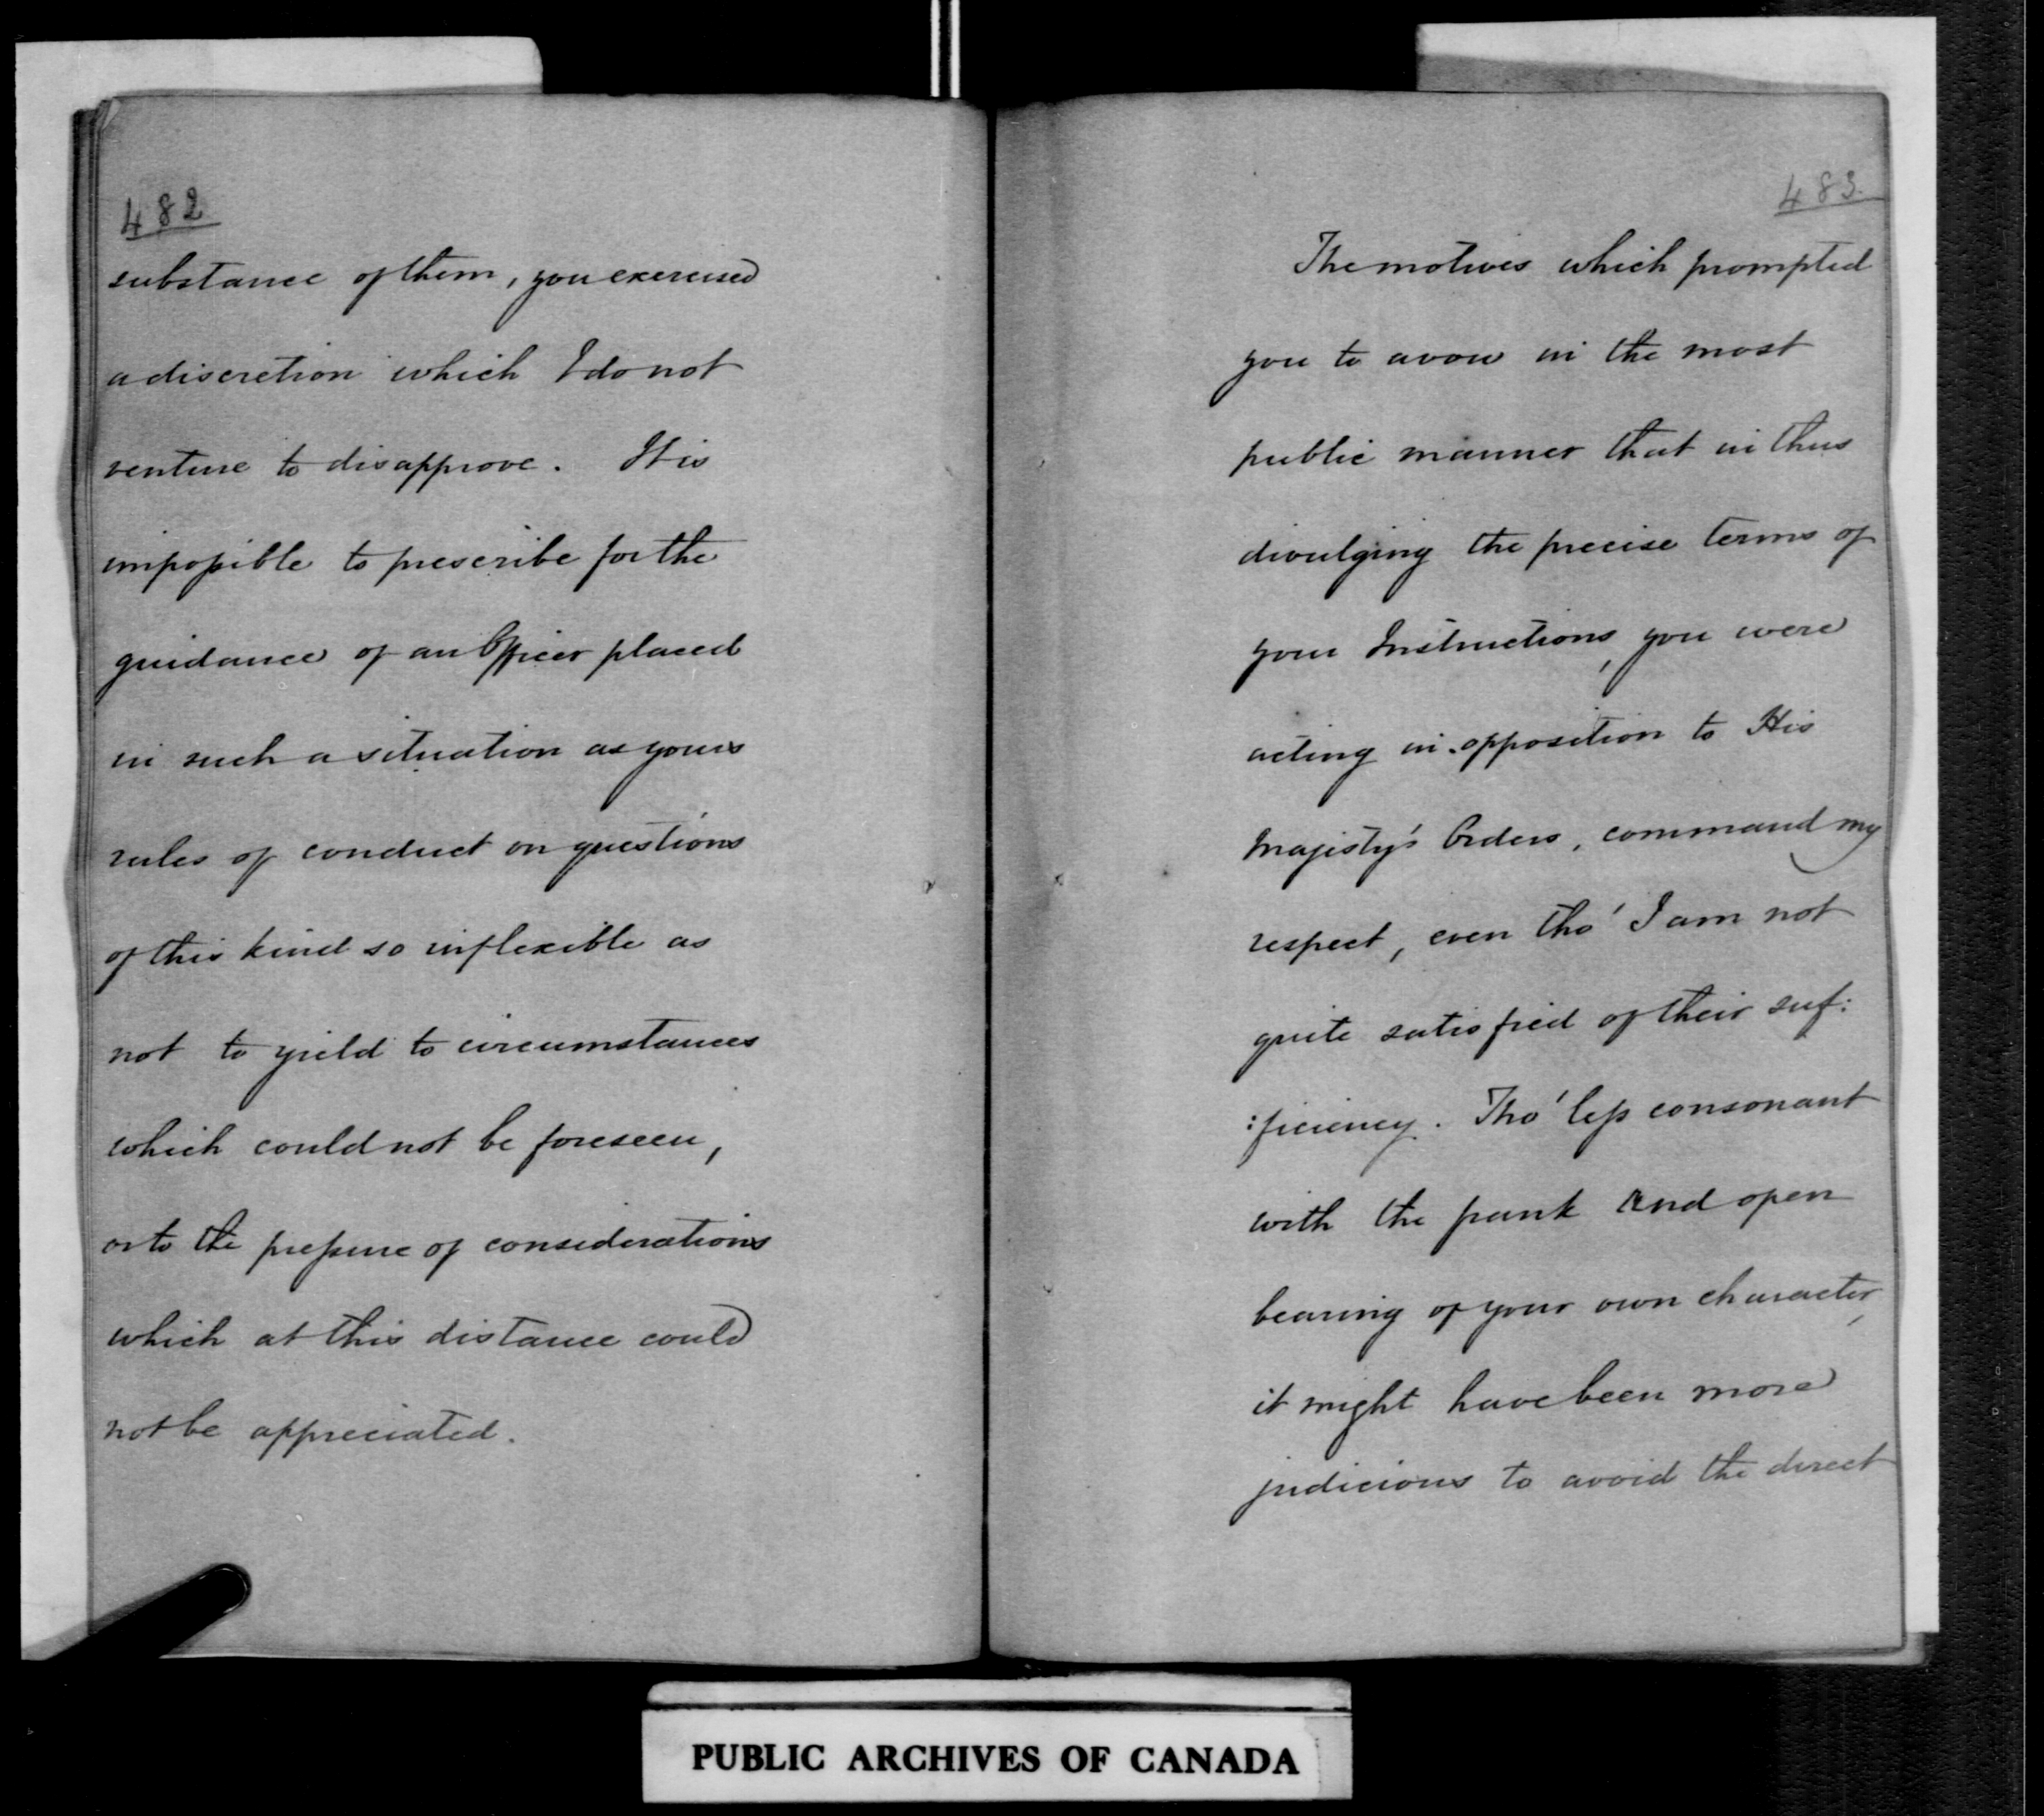 482
substance of them, you exercised
a discretion which I do not
venture to disapprove. It is
impossible to prescribe for the
guidance of an Officer placed
in such a situation as yours
rules of conduct on questions
of this kind so inflexible as
not to yield to circumstances
which could not be foreseen,
or to the pressure of considerations
which at this distance could
not be appreciated.
483.
The motives which prompted
you to avow in the most
public manner that in thus
divulging the precise terms of
your Instructions, you were
acting in opposition to His
Majisty's Orders, command my
respect, even tho' I am not
quite satisfied of their suf:
:ficiency. Tho' less consonant
with the frank and open
bearing of your own character,
it might have been more
judicious to avoid the direct
PUBLIC ARCHIVES OF CANADA